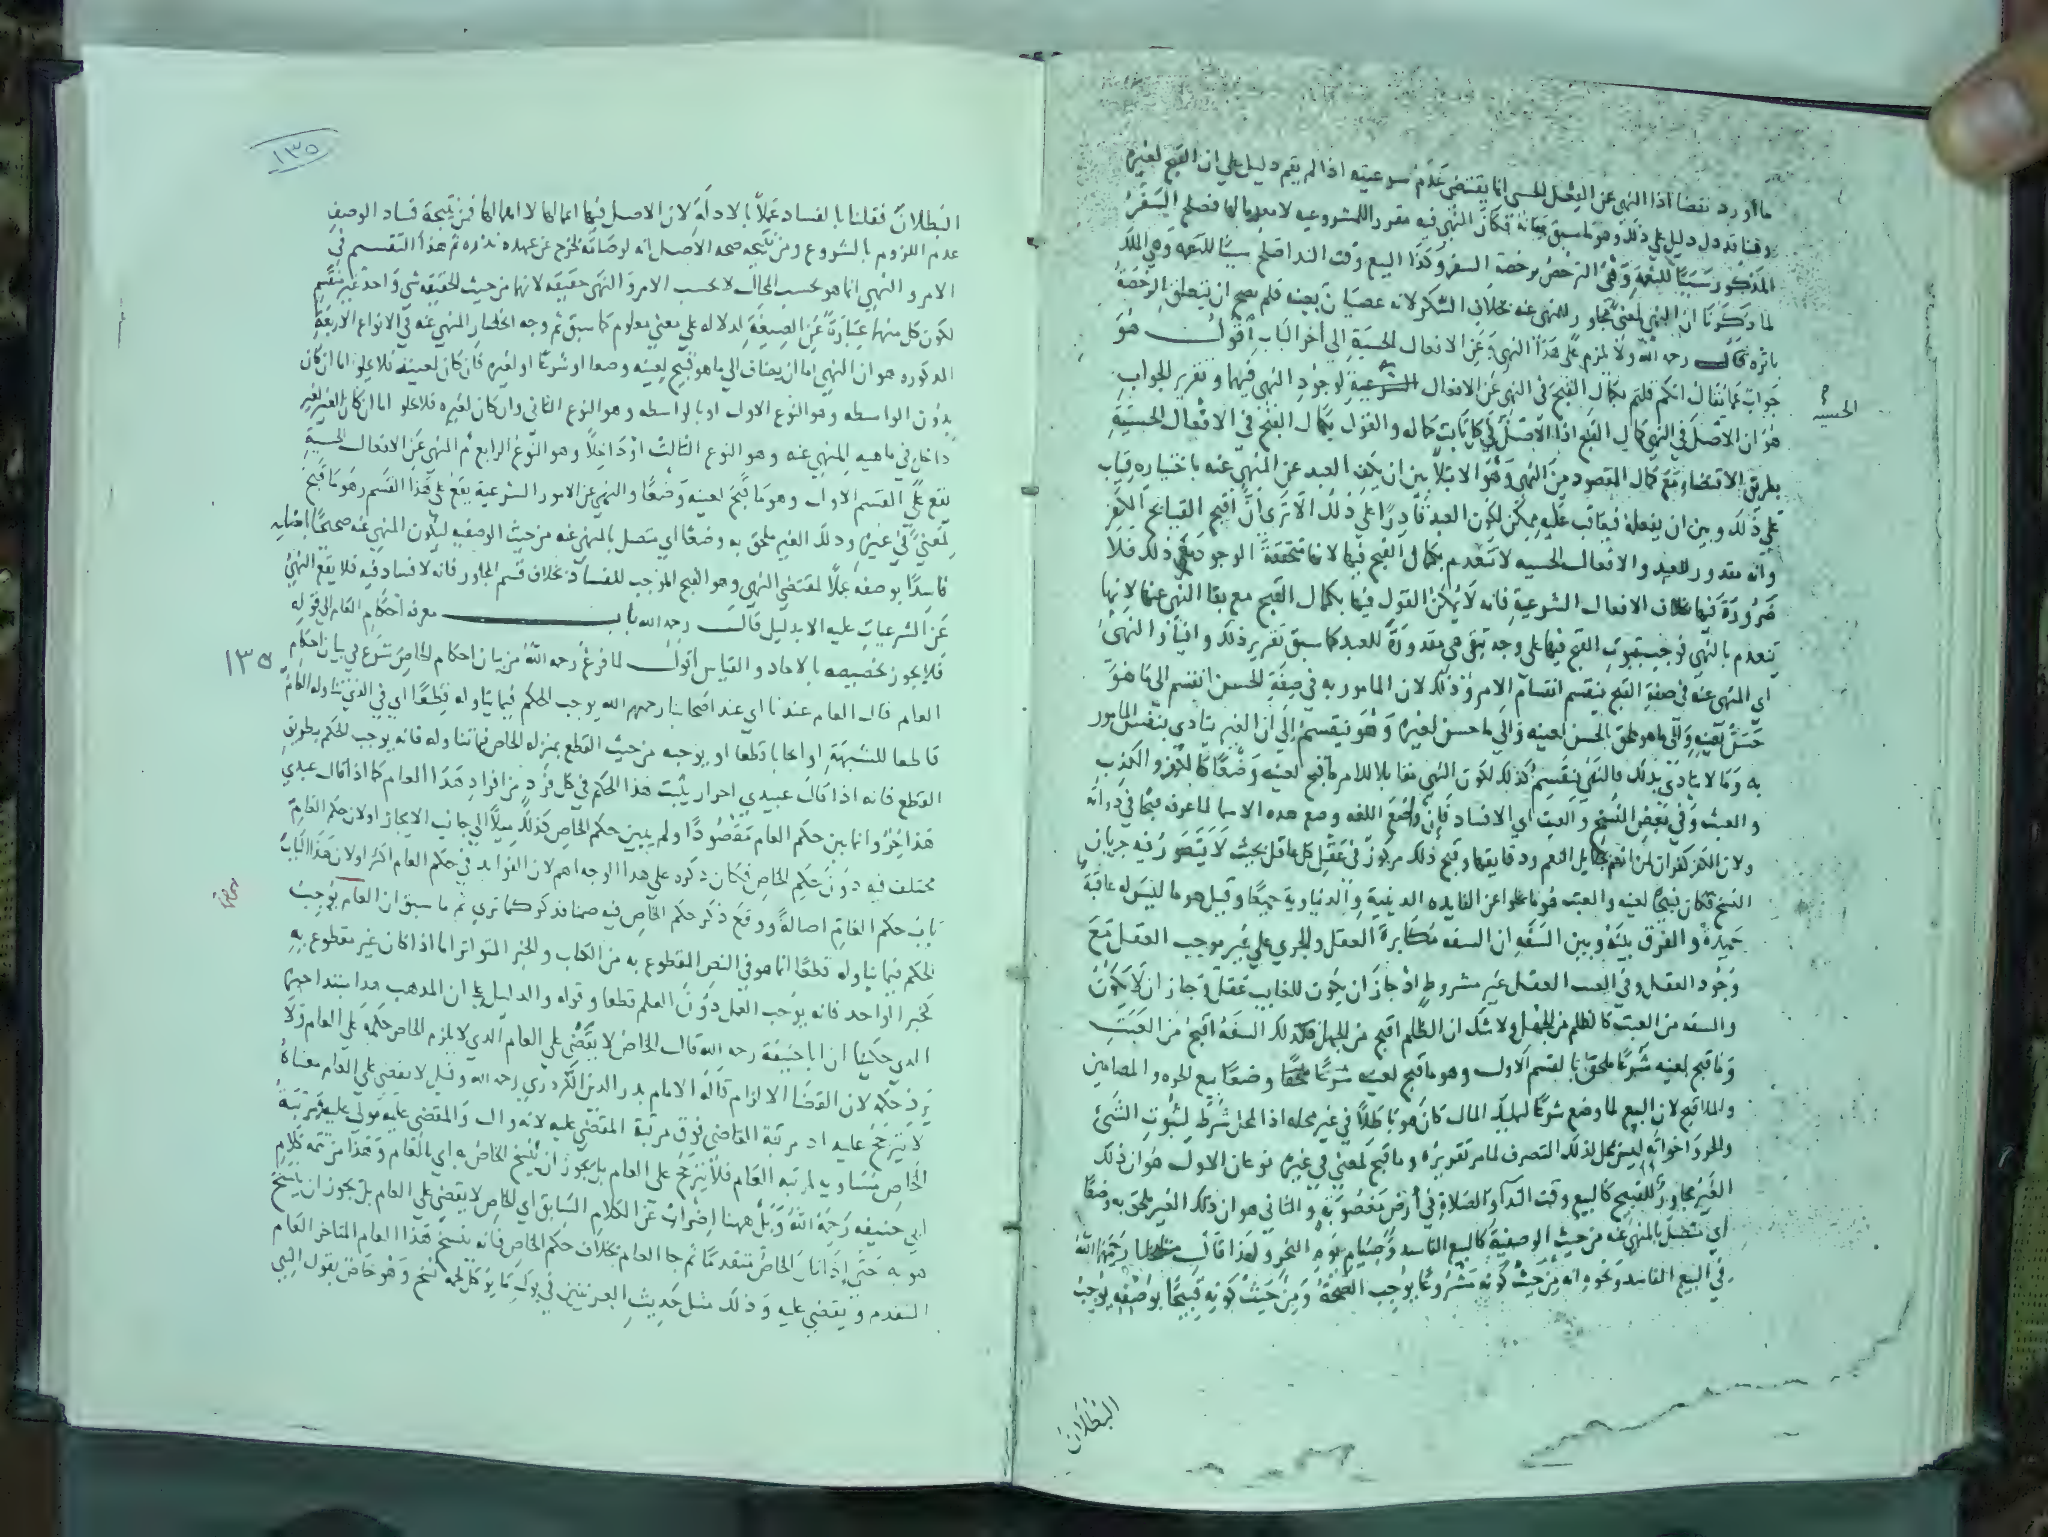 ما أورد نقضا اذا النهى عن الفعل الحسي انما يقتضي عدم شرعيته اذا لم يقم دليل على ان القبح لغيره
وهنا قد دل دليل على ذلك وهو لما سبق بيانه فكان النهى فيه مقررا للمشروعيه لا معدما لها فصلح السفر
المذكور سببا للنعمة وهي الترخص برخصة السفر وكذا البيع وقت النداء صلح سببا للنعمه وهي الملك
لما ذكرنا ان النهى لمعنى مجاور للمنهى عنه بخلاف السكر لانه عصيان بعينه فلم يصح ان يتعلق الرخصة
باثره قال رحمه الله ولا يلزم على هذا النهى عن الافعال الحسية الى آخر الباب اقول هو
جواب عما يقال انكم قلتم بكمال القبح في النهى عن الافعال الحسية لوجود النهى فيها وتقرير الجواب
هو ان الاصل في النهى كمال القبح اذ الاصل في كل ثابت كماله والقول بكمال القبح في الافعال الحسية
بطريق الاقتضاء مع كمال المقصود من النهى وهو الابتلا بين ان يكف العبد عن المنهى عنه باختياره فيثاب
على ذلك وبين ان يفعله فيعاقب عليه ممكن لكون العبد قادرا على ذلك الا ترى ان اقبح القبائح الكفر
وانه مقدور للعبد والافعال الحسيه لا تنعدم بكمال القبح فيها لانها متحققة الوجود مع ذلك فلا
ضرورة فيها بخلاف الافعال الشرعية فانه لا يمكن القول فيها بكمال القبح مع بقا النهى عنها لانها
تنعدم بالنهى فوجب ثبوت القبح فيها على وجه تبقى هي مقدورة للعبد كما سبق تقرير ذلك والنهى
اي المنهى عنه في صفة القبح ينقسم انقسام الامر وذلك لان المامور به في صفة الحسن انقسم الى ما هو
حسن لعينه والى ما هو ملحق بالحسن لعينه والى ما حسن لغيره وهو ينقسم الى ان الغير يتادى بنفس المامور
به وما لا يتادى بذلك فالنهى ينقسم كذلك لكون النهى مقابلا للامر ما قبح لعينه وضعا كالكفر والكذب
والعبث وفي بعض النسخ والعيث اي الافساد فان واضع اللغه وضع هذه الاسما لما عرفه قبحا في ذواته
ولان الكفر كفران لمن انعم بجلايل النعم ودقايقها وقبح ذلك مركوز في عقل كل عاقل بحيث لا يتصور فيه جريان
النسخ فكان قبيحا لعينه والعبث هو ما يخلو عن الفايده الدينية والدنياوية جميعا وقيل هو ما ليس له عاقبة
حميدة والفرق بينه وبين السفه ان السفه مكابرة العقل والجري على غير موجب العقل مع
وجود العقل وفي العبث العقل غير مشروط اذ جاز ان يكون للعابث عقل وجاز ان لا يكون
والسفه من العبث كالظلم من الجهل ولا شك ان الظلم اقبح من الجهل فكذلك السفه اقبح من العبث
وما قبح لعينه شرعا ملحقا بالقسم الاول وهو ما قبح لعينه وضعا بيع الحر والمضامين
والملاقيح لان البيع لما وضع شرعا لتمليك المال كان هو باطلا في غير محله اذ المحل شرط لثبوت الشيئ
والحر واخواته ليس محل لذلك التصرف لما مر تقريره وما قبح لمعنى في غيره نوعان الاول هو ان ذلك
الغير مجاور للقبيح كالبيع وقت النداء والصلاة في أرض مغصوبة والثاني هو ان ذلك الغير ملحق به وضعا
اي متصل بالمنهى عنه من حيث الوصفية كالبيع الفاسد وصيام يوم النحر ولهذا قال رحمه الله
في البيع الفاسد ونحوه انه من حيث كونه مشروعا يوجب الصحة ومن حيث كونه قبيحا بوصفه يوجب
الحسية
البطلان
١٣٥
البطلان فقلنا بالفساد عملا بالادلة لان الاصل فيها اعمالها لا اهمالها فمن نتيجة فساد الوصف
عدم اللزوم بالشروع ومن نتيجه صحه الاصل انه لو صامه لخرج عن عهده نذره ثم هذا التقسيم في
الامر والنهي انما هو بحسب المحال لا بحسب الامر والنهى حقيقه لانهما من حيث الحقيقه شى واحد غير منقسم
لكون كل منهما عبارة عن الصيغة الدلاله على معنى معلوم كما سبق ثم وجه انحصار المنهى عنه في الانواع الاربعة
المذكوره هو ان النهى اما ان يضاف الى ما هو قبيح لعينه وضعا او شرعا او لغيره فان كان لعينه فلا يخلو اما ان كان
بدون الواسطه وهو النوع الاول او بالواسطه وهو النوع الثاني وان كان لغيره فلا يخلو اما ان كان الغير غير
داخل في ماهيه المنهى عنه وهو النوع الثالث او داخلا وهو النوع الرابع ثم النهى عن الافعال الحسية
يقع على القسم الاول وهو ما قبح لعينه وضعا والنهى عن الامور الشرعية يقع على هذا القسم وهو ما قبح
لمعنى في غيره وذلك الغير ملحق به وضعا اي متصل بالمنهى عنه من حيث الوصفيه ليكون المنهى عنه صحيحا باصله
فاسدا بوصفه عملا لمقتضى النهى وهو القبح الموجب للفساد بخلاف قسم المجاور فانه لا فساد فيه فلا يقع النهى
عن الشرعيات عليه الا بدليل قال رحمه الله باب معرفه أحكام العام الى قوله
فلا يجوز تخصيصه بالاحاد والقياس أقول لما فرغ رحمه الله من بيان احكام الخاص شرع في بيان احكام
العام قال العام عندنا اي عند اصحابنا رحمهم الله يوجب الحكم فيما يتاوله قطعا اي في الذي تناوله العام
قاطعا للشبهة او ايجابا قطعا او يوجبه من حيث القطع بمنزله الخاص فيما تناوله فانه يوجب الحكم بطريق
القطع فانه اذا قال عبيدي احرار يثبت هذا الحكم في كل فرد من افراد هذا العام كما اذا قال عبدي
هذا حر وانما بين حكم العام مقصودا ولم يبين حكم الخاص كذلك ميلا الى جانب الايجاز او لان حكم العام
مختلف فيه دون حكم الخاص فكان ذكره على هذا الوجه اهم لان الفوايد في حكم العام اكثر او لان هذا الباب
باب حكم العام اصالة ووقع ذكر حكم الخاص فيه ضمنا فذكر كما ترى ثم ما سبق ان العام يوجب
الحكم فيما يتاوله قطعا انما هو في النص المقطوع به من الكتاب والخبر المتواتر اما اذا كان غير مقطوع به
كخبر الواحد فانه يوجب العمل دون العلم قطعا وقوله والدليل على ان المذهب هذا مبتدا خبره
الذي حكينا ان ابا حنيفة رحمه الله قال الخاص لا يقضى على العام الذي لا يلزم الخاص حكمه على العام ولا
يرد حكمه لان القضا الالزام قاله الامام بدر الدين الكردري رحمه الله وقيل لا يقضى على العام معناه
لا يترجح عليه اذ مرتبة القاضي فوق مرتبة المقضى عليه لانه وال والمقضى عليه مولى عليه ومرتبة
الخاص متساويه لمرتبه العام فلا يترجح على العام بل يجوز ان ينسخ الخاص به اي بالعام وهذا من تتمه كلام
ابي حنيفه رحمه الله وبل ههنا اضراب عن الكلام السابق اي الخاص لا يقضى على العام بل يجوز ان ينسخ
هو به حتى إذا كان الخاص متقدما ثم جا العام بخلاف حكم الخاص فانه ينسخ هذا العام المتاخر العام
المتقدم ويقضى عليه وذلك مثل حديث العرنيين في بول ما يؤكل لحمه نسخ وهو خاص بقول النبي
١٣٥